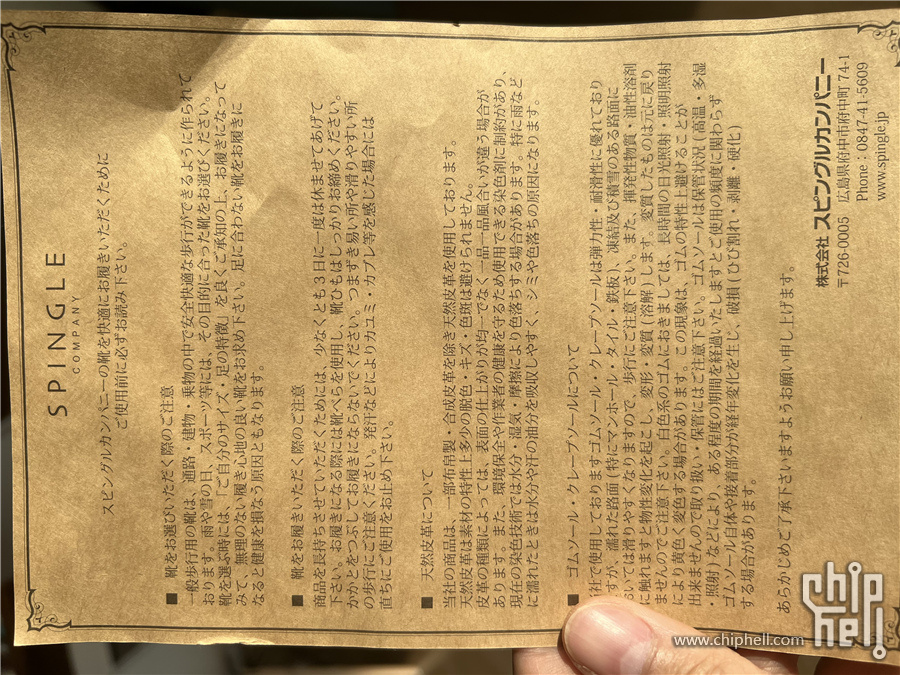 SPINGLE
COMPANY
スピングルカンパニーの靴を快適にお履きいただくために
ご使用前に必ずお読み下さい。
■ 靴をお選びいただく際のご注意
一般歩行用の靴は、通路・建物・乗物の中で安全快適な歩行ができるように作られて
おります。雨や雪の日、スポーツ等には、その目的に合った靴をお選びください。
靴を選ぶ時には、「ご自分のサイズ・足の特徴」を良くご承知の上、お履きになって
みて、無理のない履き心地の良い靴をお求め下さい。足に合わない靴をお履きに
なると健康を損なう原因ともなります。
■ 靴をお履きいただく際のご注意
商品を長持ちさせていただくためには、少なくとも3日に一度は休ませてあげて
下さい。お履きになる際には靴べらを使用し、靴ひもはしっかりお締めください。
かかとをつぶしてお履きにならないでください。つまずき易い所や滑りやすい所
の歩行にご注意ください。発汗などによりカユミ・カブレ等を感じた場合には
直ちにご使用をお止め下さい。
■ 天然皮革について
当社の商品は、一部布帛製・合成皮革を除き天然皮革を使用しております。
天然皮革は素材の特性上多少の脱色・キズ・色斑は避けられません。
皮革の種類によっては、表面の仕上がりが均一でなく一品一品風合いが違う場合が
あります。また、環境保全や作業者の健康を守るため使用できる染色剤に制約があり、
現在の染色技術では水分・湿気・摩擦により色落ちする場合があります。特に雨など
に濡れたときは水分や汗の油分を吸収しやすく、シミや色落ちの原因になります。
■ ゴムソール・クレープソールについて
社で使用しておりますゴムソール・クレープソールは弾力性・耐滑性に優れており
ますが、濡れた路面(特にマンホール・タイル・鉄板)、凍結及び積雪のある路面に
おいては滑りやすくなりますので、歩行にご注意下さい。また、揮発性物質・油性溶剤
に触れますと物性変化を起こし、変形・変質(溶解)します。変質したものは元に戻り
ませんのでご注意下さい。白色系のゴムにおきましては、長時間の日光照射・照明照射
により黄色く変色する場合があります。この現象は、ゴムの特性上避けることが
出来ませんので取り扱い・保管にはご注意下さい。ゴムソールは保管状況(高温・多湿
・照射)などにより、ある程度の期間を経過いたしますとご使用の頻度に関わらず
ゴムソール自体や接着部分が経年変化を生じ、破損(ひび割れ・剥離・硬化)
する場合があります。
あらかじめご了承下さいますようお願い申し上げます。
株式会社 スピングルカンパニー
〒726-0005 広島県府中市府中町74-1
Phone : 0847-41-5609
www.spingle.jp
www.chiphell.com
chip
hell